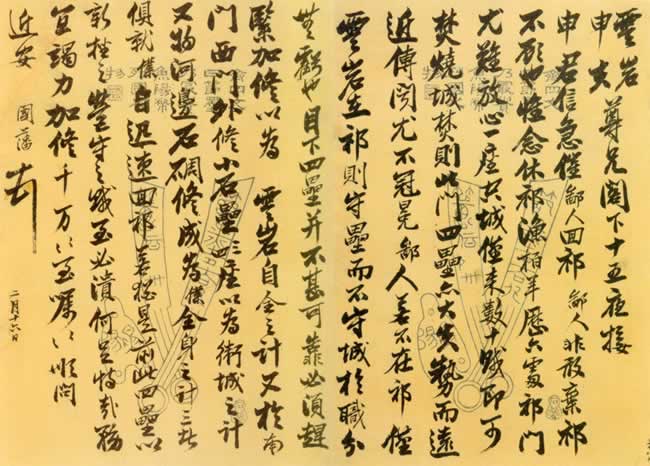 雲岩
申夫
尊兄閣下十五夜接
申君信急催鄙人回祁鄙人非敢棄祁
不顧也惟念休祁漁柏羊歷六處祁門
尤難放心一座空城僅來數十賊即可
焚燒城焚則此門四壘六大失勢而遠
近傳聞尤不冠晃鄙人若不在祁僅
雲岩在祁則守壘而不守城於職分
無虧也目下四壘并不甚可靠必須趕
緊加修以為 雲岩自全之計又於南
門西門外修小石壘三座以為衛城之計
又物河邊石碉修成為僕全身之計三者
俱就僕自迅速回祁若猶是前此四壘以
新挫之營守之賊至必潰何足恃哉務
宜竭力加修千万〻至囑〻順問
近安 國藩
二月十六日